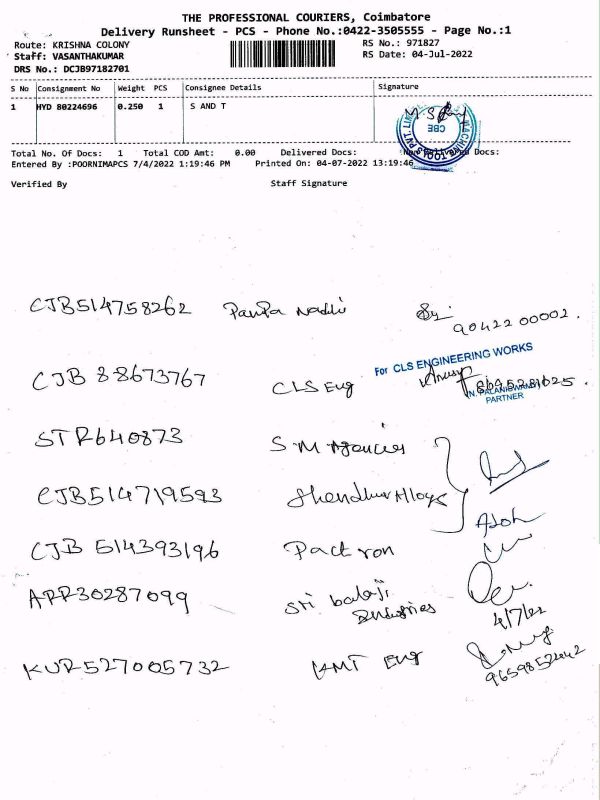 THE PROFESSIONAL COURIERS, Coimbatore
Delivery Runsheet - PCS - Phone No.:0422-3505555 - Page No.:1
Route: KRISHNA COLONY
RS No.: 971827
Staff: VASANTHAKUMAR
RS Date: 04-Jul-2022
DRS No.: DCJB97182701
S No Consignment No Weight PCS Consignee Details Signature
1 HYD 80224696 0.250 1 S AND T
CBE
Total No. Of Docs: 1 Total COD Amt: 0.00 Delivered Docs: Docs:
Entered By :POORNIMAPCS 7/4/2022 1:19:46 PM Printed On: 04-07-2022 13:19:46
Verified By Staff Signature
CJB514758262 Pampa Nadhi
90422 00002.
For CLS ENGINEERING WORKS
CJB 88673767 CLS Eng
N. PALANISWAMI
PARTNER
STR640873 S.M Agencies
CJB514719593 Shendhur Alloys
CJB 514393196 Pactron
ARR30287099 Sri balaji
Industries
4/7/22
KUR527005732 KMT Eng